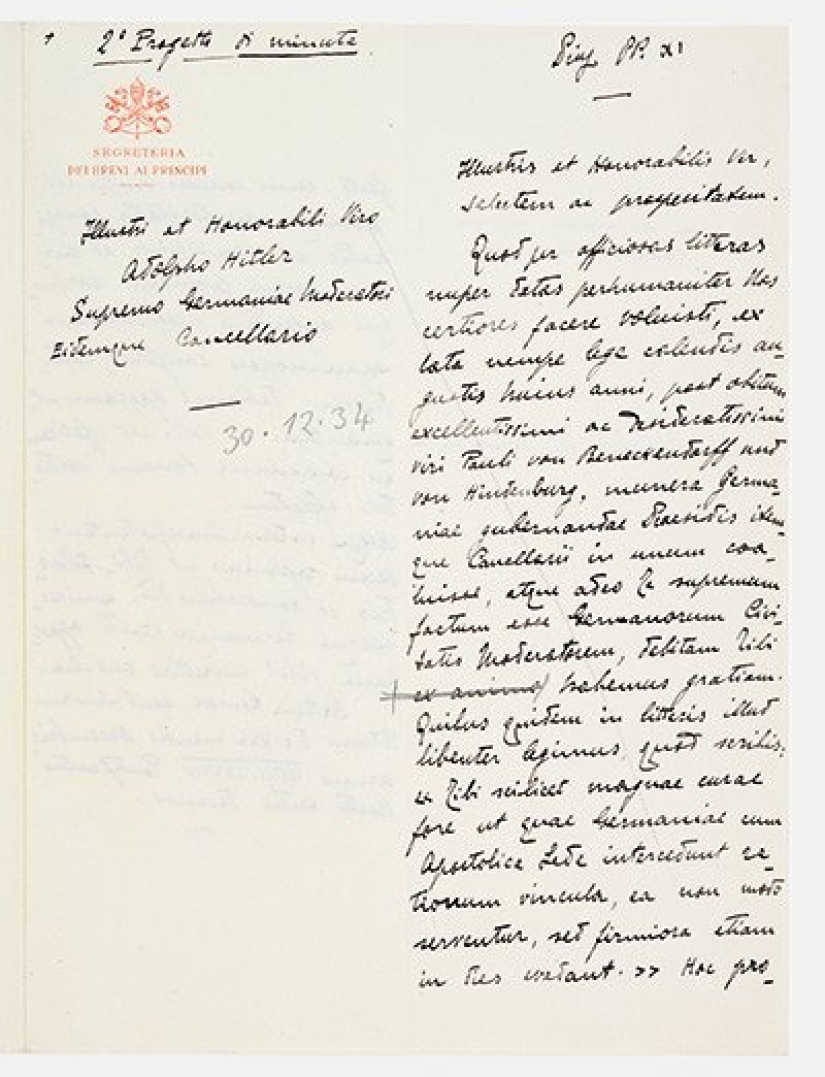 2° Progetto di minuta
SEGRETERIA
DEI BREVI AI PRINCIPI
Illustri et Honorabili Viro
Adolpho Hitler
Supremo Germaniae Moderatori
Eidemque Cancellario
30.12.34
Pius PP. XI
Illustris et Honorabilis Vir,
salutem ac prosperitatem.
Quod per officiosas litteras
nuper datas perhumaniter Nos
certiores facere voluisti, ex
lata nempe lege calendis au-
gustis huius anni, post obitum
excellentissimi ac desideratissimi
viri Pauli von Beneckendorff und
von Hindenburg, munera Germa-
niae gubernandae Praesidis item-
que Cancellarii in unum coa-
luisse, atque adeo Te supremum
factum esse Germanorum Civi-
tatis Moderatorem, debitam Tibi
ex animo habemus gratiam.
Quibus quidem in litteris illud
libenter legimus, quod scribis:
<< Tibi scilicet magnae curae
fore ut quae Germaniae cum
Apostolica Sede intercedunt ra-
tionum vincula, ea non modo
serventur, sed firmiora etiam
in dies evadant. >> Hoc pro-